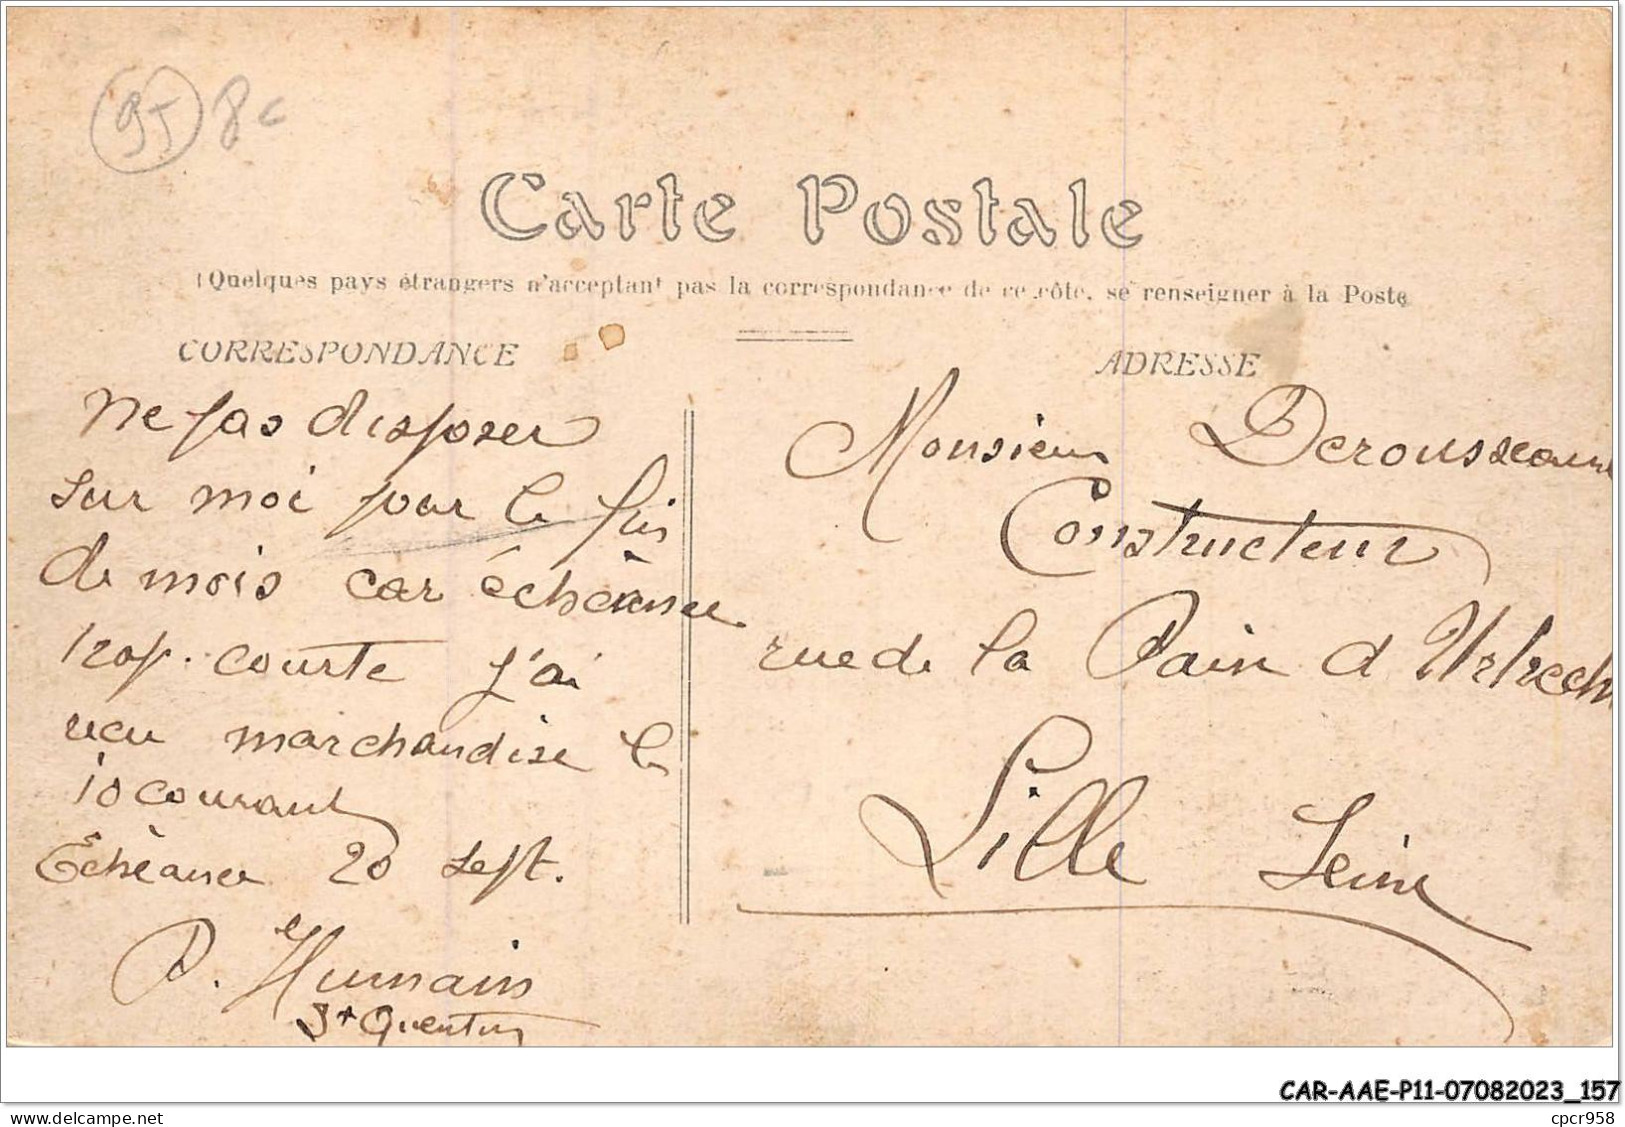 95 8c
Carte Postale
(Quelques pays étrangers n'acceptant pas la correspondance de ce côté, se renseigner à la Poste
CORRESPONDANCE
ne pas disposer
sur moi pour la fin
de mois car échéance
trop. courte j'ai
reçu marchandise le
10 courant
Échéance 20 Sept.
P. Humain
St Quentin
ADRESSE
Monsieur Derousseaux
Constructeur
rue de la Pain d'Utrech
Lille Seine
CAR-AAE-P11-07082023_157
cpcr958
delcampe.net